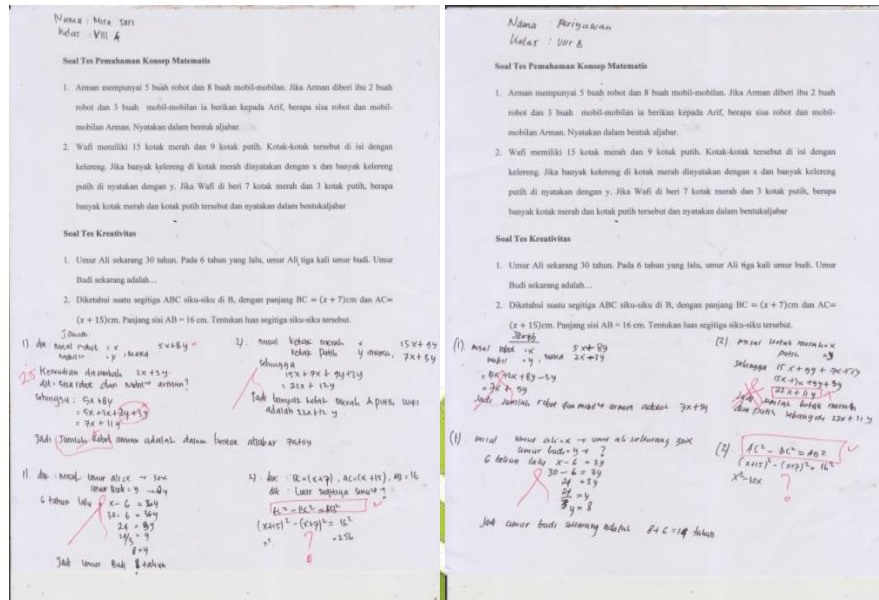 Nama : Mira Sari
Kelas : VIII A
Soal Tes Pemahaman Konsep Matematis
1. Arman mempunyai 5 buah robot dan 8 buah mobil-mobilan. Jika Arman diberi ibu 2 buah
robot dan 3 buah mobil-mobilan ia berikan kepada Arif, berapa sisa robot dan mobil-
mobilan Arman. Nyatakan dalam bentuk aljabar.
2. Wafi memiliki 15 kotak merah dan 9 kotak putih. Kotak-kotak tersebut di isi dengan
kelereng. Jika banyak kelereng di kotak merah dinyatakan dengan x dan banyak kelereng
putih di nyatakan dengan y. Jika Wafi di beri 7 kotak merah dan 3 kotak putih, berapa
banyak kotak merah dan kotak putih tersebut dan nyatakan dalam bentukaljabar
Soal Tes Kreativitas
1. Umur Ali sekarang 30 tahun. Pada 6 tahun yang lalu, umur Ali tiga kali umur budi. Umur
Budi sekarang adalah…
2. Diketahui suatu segitiga ABC siku-siku di B, dengan panjang BC = (x + 7)cm dan AC=
(x + 15)cm. Panjang sisi AB = 16 cm. Tentukan luas segitiga siku-siku tersebut.
Jawab:
1). dik: misal robot = x 5x+8y
mobil = y, maka
25 Kemudian ditambah 2x+3y
dit: sisa robot dan mobil² arman?
Sehingga: 5x+8y
= 5x+2x+8y+3y
= 7x+11y
Jadi jumlah robot arman adalah dalam bentuk aljabar
2). misal kotak merah = x 15x+9y
kotak putih y maka, 7x+3y
sehingga
15x+7x+9y+3y
= 22x+12y
Jadi banyak kotak merah & putih
adalah 22x+12y
1). dik: misal umur ali=x → 30x
umur Budi = y
6 tahun lalu x-6 = 3y
30-6 = 3y
24 = 3y
24/3 = y
8 = y
Jadi umur Budi 8 tahun
2). dik: BC=(x+7), AC=(x+15), AB=16
dit: Luas segitiga
AC² - BC² = AB²
(x+15)² - (x+7)² = 16²
x² = 256
?
Nama : Periyawan
Kelas : VIII B
Soal Tes Pemahaman Konsep Matematis
1. Arman mempunyai 5 buah robot dan 8 buah mobil-mobilan. Jika Arman diberi ibu 2 buah
robot dan 3 buah mobil-mobilan ia berikan kepada Arif, berapa sisa robot dan mobil-
mobilan Arman. Nyatakan dalam bentuk aljabar.
2. Wafi memiliki 15 kotak merah dan 9 kotak putih. Kotak-kotak tersebut di isi dengan
kelereng. Jika banyak kelereng di kotak merah dinyatakan dengan x dan banyak kelereng
putih di nyatakan dengan y. Jika Wafi di beri 7 kotak merah dan 3 kotak putih, berapa
banyak kotak merah dan kotak putih tersebut dan nyatakan dalam bentukaljabar
Soal Tes Kreativitas
1. Umur Ali sekarang 30 tahun. Pada 6 tahun yang lalu, umur Ali tiga kali umur budi. Umur
Budi sekarang adalah…
2. Diketahui suatu segitiga ABC siku-siku di B, dengan panjang BC = (x + 7)cm dan AC=
(x + 15)cm. Panjang sisi AB = 16 cm. Tentukan luas segitiga siku-siku tersebut.
Jawab
(1). misal robot =x 5x+8y
mobil =y, maka 2x+3y
= 5x+2x+8y-3y
= 7x+5y
Jadi jumlah robot dan mobil² arman adalah 7x+5y
(2). misal kotak merah=x
putih =y
sehingga 15x+9y+7x+3y
15x+7x+9y+3y
22x+11y
Jadi jumlah kotak merah
dan putih sebanyak 22x+11y
(1). misal umur ali=x → umur ali sekarang 30x
umur budi=y → ?
6 tahun lalu x-6 = 3y
30-6 = 3y
24 = 3y
= y
y = 8
Jadi umur budi sekarang adalah 8+6=14 tahun
(2) AC² - BC² = AB²
(x+15)² - (x+7)² = 16²
x²-30x
?